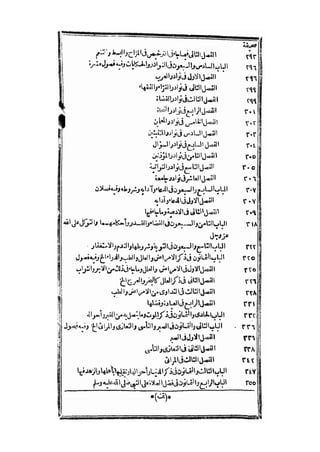 صحيفة
٢٩٣ الفصل الثانى فيما جاء فى الترخيص فى المزاح والبسط والتنعم
٢٩٦ الباب السادس والسبعون فى النوادر والحكايات وفيه فصول عشرة
٢٩٦ الفصل الاول فى نوادر العرب
٢٩٩ الفصل الثانى فى نوادر القراء والفقهاء
٢٩٩ الفصل الثالث فى نوادر القضاة
٣٠١ الفصل الرابع فى نوادر
٣٠٢ الفصل الخامس فى نوادر
٣٠٣ الفصل السادس فى نوادر المتنبئين
٣٠٤ الفصل السابع فى نوادر السؤال
٣٠٥ الفصل الثامن فى نوادر المؤذنين
٣٠٥ الفصل التاسع فى نوادر النواتية
٣٠٦ الفصل العاشر فى نوادر جامعة
٣٠٧ الباب السابع والسبعون فى الدعاء وآدابه وشروطه وفيه فصلان
٣٠٧ الفصل الاول فى الدعاء وآدابه
٣٠٩ الفصل الثانى فى الادعية وما جاء فيها
٣١٨ الباب الثامن والسبعون فى القضاء والقدر وأحكامهما والتوكل على الله
عز وجل
٣٢٢ الباب التاسع والسبعون فى التوبة وشروطها والندم والاستغفار
٣٢٥ الباب الثمانون فى ذكر الامراض والعلل والطب والدواء الخ وفيه فصول
٣٢٥ الفصل الاول فى الامراض والعلل وما جاء فى ذلك من الاجر والثواب
٣٢٦ الفصل الثانى فى ذكر العلل كالبخر والعرج الخ
٣٢٨ الفصل الثالث فى التداوى من الامراض والطب
٣٣١ الفصل الرابع فى العيادة وفضلها
٣٣٢ الباب الحادى والثمانون فى ذكر الموت وما يتصل به من القبر وأحواله
٣٣٦ الباب الثانى والثمانون فى الصبر والتأسى والتعازى والمراثى الخ وفيه فصول
٣٣٦ الفصل الاول فى الصبر
٣٣٨ الفصل الثانى فى التعازى والتأسى
٣٤٢ الفصل الثالث فى المراثى
٣٤٧ الباب الثالث والثمانون فى ذكر الدنيا وأحوالها وتقلبها بأهلها والزهد فيها
٣٥٥ الباب الرابع والثمانون فى فضل الصلاة على النبى صلى الله عليه وسلم
*(تمت)*